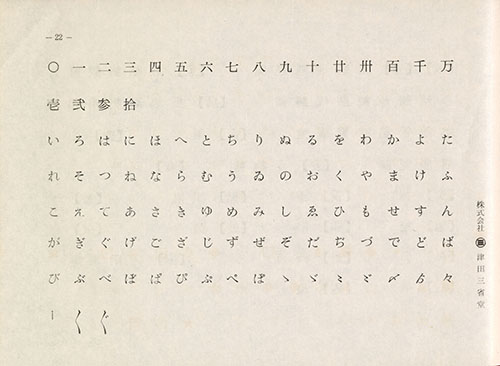 — 22 —
〇 一 二 三 四 五 六 七 八 九 十 廿 卅 百 千 万
壱 弐 参 拾
い ろ は に ほ へ と ち り ぬ る を わ か よ た
れ そ つ ね な ら む う ゐ の お く や ま け ふ
こ え て あ さ き ゆ め み し ゑ ひ も せ す ん
が ぎ ぐ げ ご ざ じ ず ぜ ぞ だ ぢ づ で ど ば
び ぶ べ ぼ ぱ ぴ ぷ ぺ ぽ ゝ ゞ 〆 々
ー 〱 〲
株式会社 津田三省堂